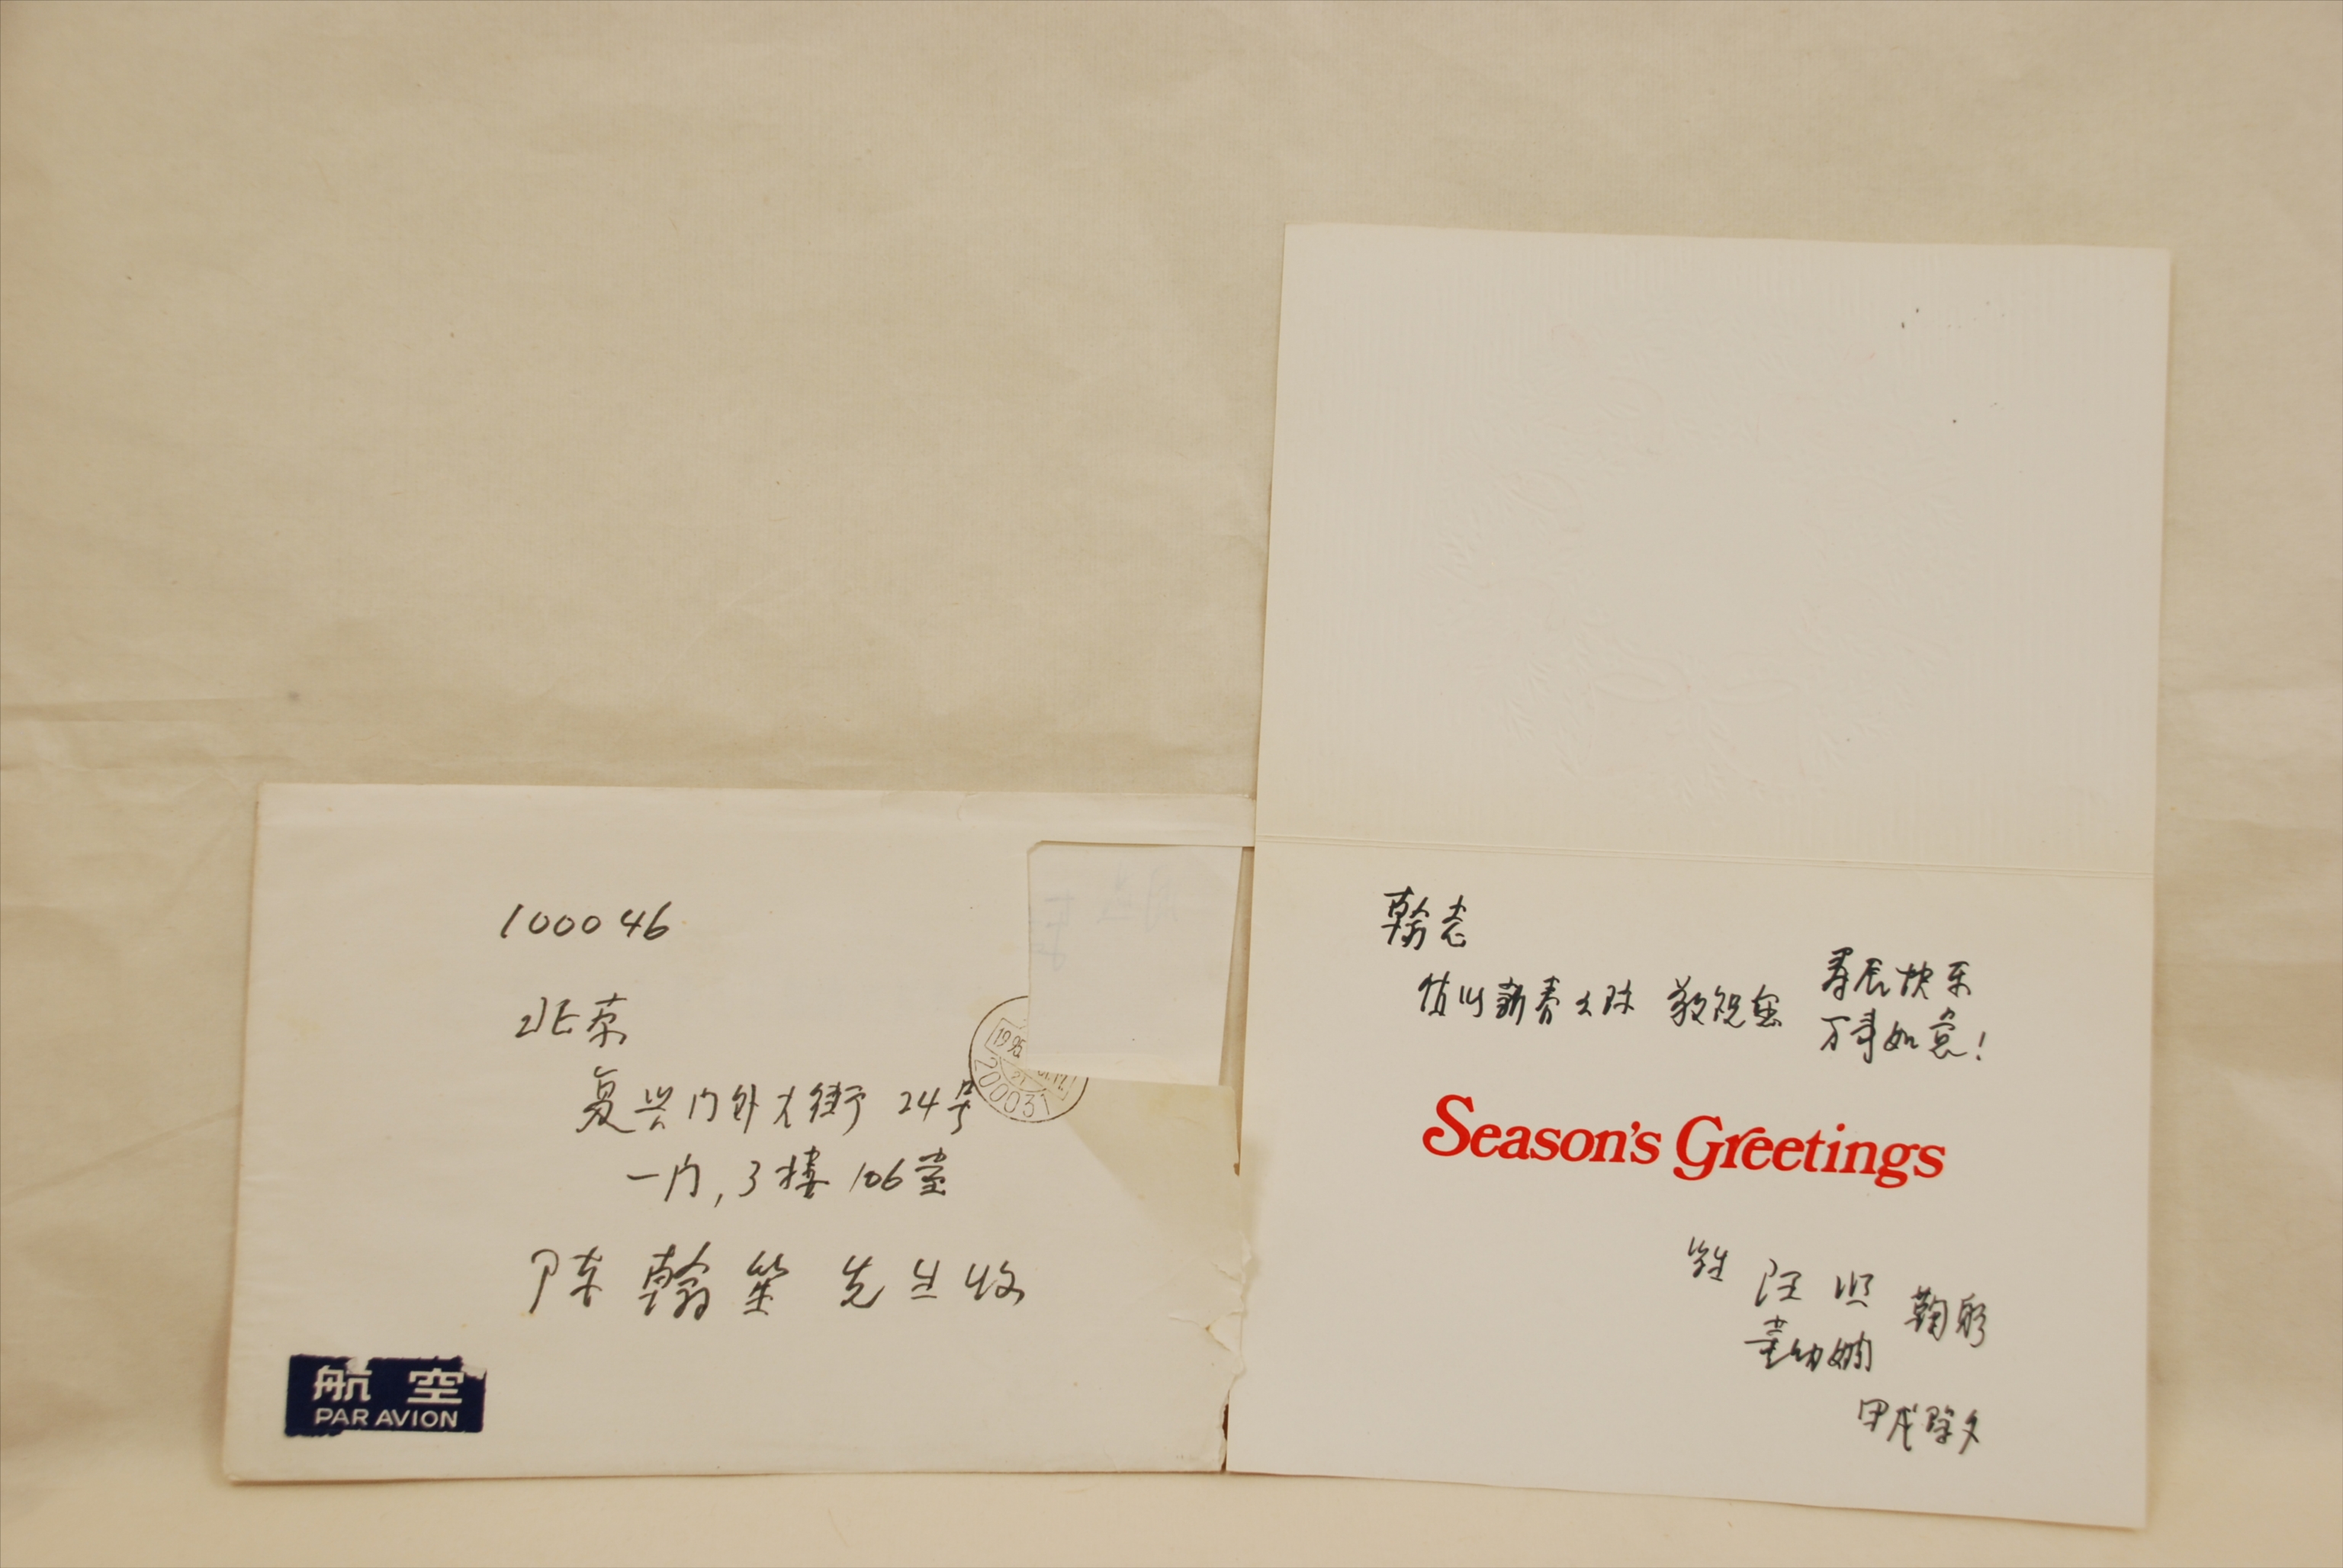 100046
北京
复兴门外大街 24号
一门, 3楼 106室
陈翰笙 先生收
航空
PAR AVION
1995
200031
翰老
值此新春之际 敬祝您 寿辰快乐
万事如意!
Season's Greetings
学生 汪熙 鞠躬
甲戌除夕